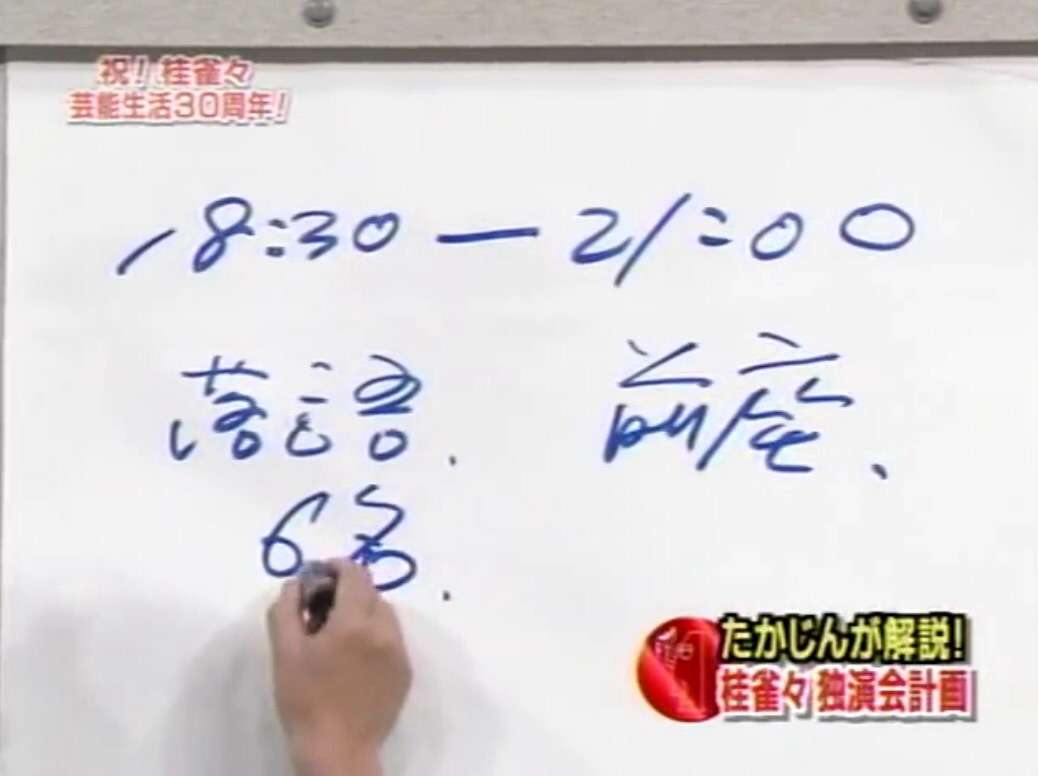 祝!桂雀々
芸能生活30周年!
18:30 — 21:00
落語、前座、
6名、
たかじんが解説!
桂雀々 独演会計画